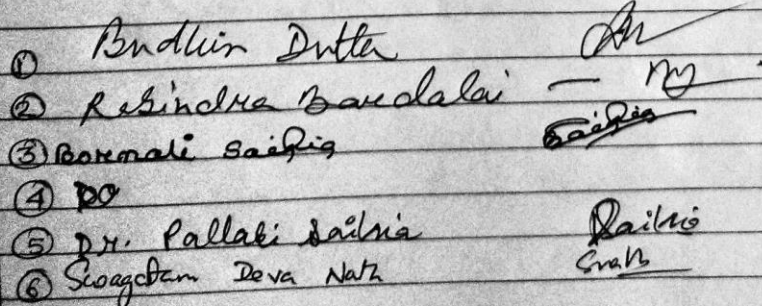 ① Budhin Dutta
② Rabindra Bardalai —
③ Bornali Saikia Saikia
④ DO
⑤ Dr. Pallabi Saikia Saikia
⑥ Swagatam Deva Nath